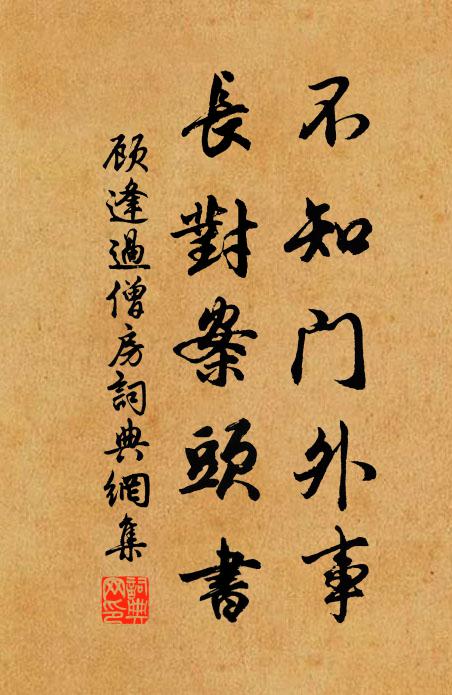 不知门外事
長對案頭書
顾逢過僧房詞典網集
詞典
网印